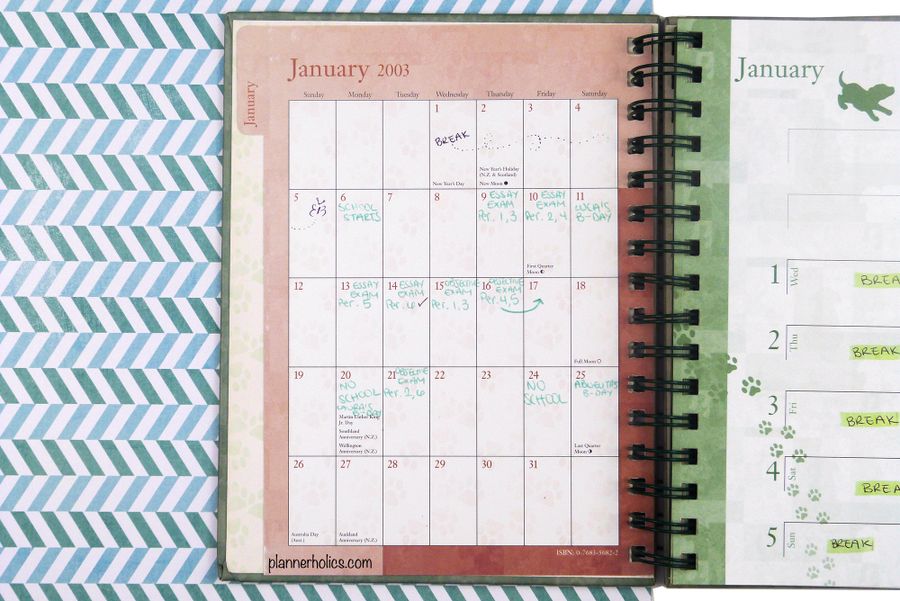 January
January 2003
Sunday Monday Tuesday Wednesday Thursday Friday Saturday
1 2 3 4
BREAK
New Year's Day
New Year's Holiday
(N.Z. & Scotland)
New Moon
5 6 7 8 9 10 11
SCHOOL
STARTS
ESSAY
EXAM
Per. 1, 3
ESSAY
EXAM
Per. 2, 4
First Quarter
Moon
LUCA'S
B-DAY
12 13 14 15 16 17 18
ESSAY
EXAM
Per. 5
ESSAY
EXAM
Per. 6
OBJECTIVE
EXAM
Per. 1, 3
OBJECTIVE
EXAM
Per. 4, 5
Full Moon
19 20 21 22 23 24 25
NO
SCHOOL
LAURA'S
B-DAY
Martin Luther King
Jr. Day
Southland
Anniversary (N.Z.)
Wellington
Anniversary (N.Z.)
OBJECTIVE
EXAM
Per. 2, 6
NO
SCHOOL
ABUELITA'S
B-DAY
Last Quarter
Moon
26 27 28 29 30 31
Australia Day
(Aust.)
Auckland
Anniversary (N.Z.)
ISBN: 0-7683-5682-2
plannerholics.com
January
1 Wed BREAK
2 Thu BREAK
3 Fri BREAK
4 Sat BREA
5 Sun BREAK